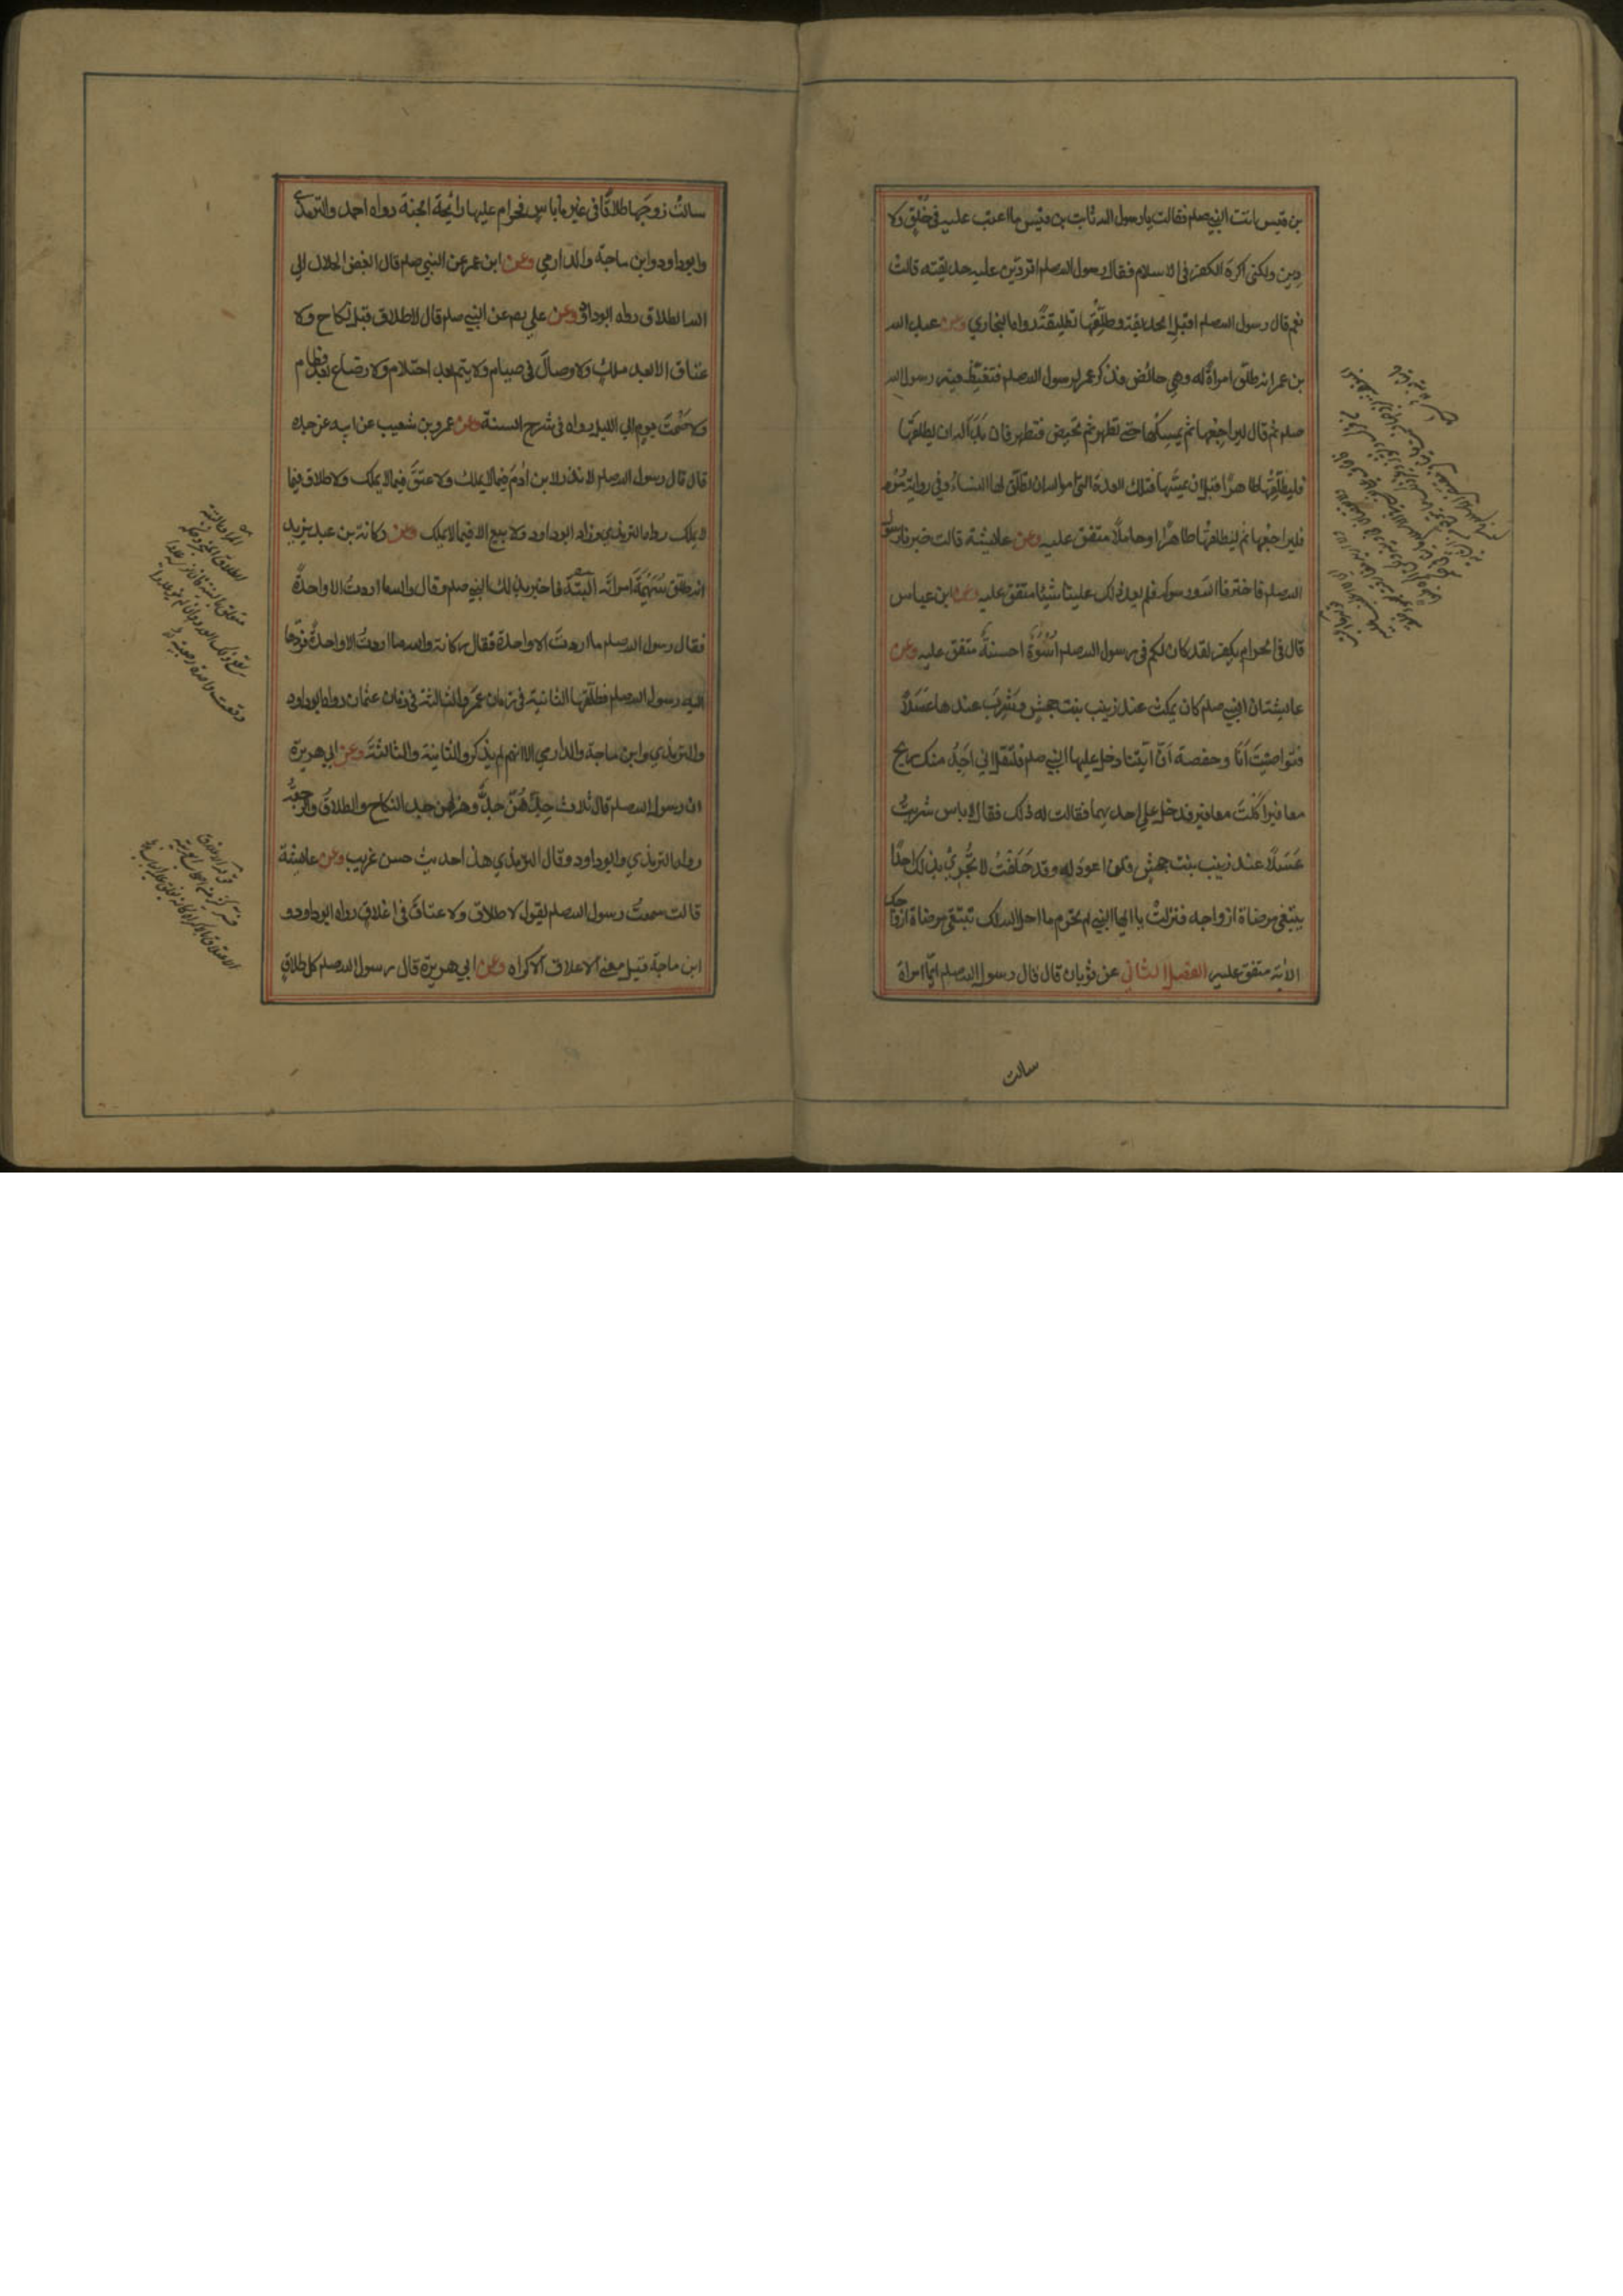 بن قيس اتت النبي صلم فقالت يا رسول الله ثابت بن قيس ما اعتب عليه في خُلُقٍ ولا
دِينٍ ولكني اكرهُ الكفر في الاسلام فقال رسول الله صلم اتردّين عليه حديقته قالت
نعم قال رسول الله صلم اقبلِ الحديقة وطلِّقْها تطليقةً رواه البخاري وعن عبد الله
بن عمر انه طلّق امراةً له وهي حائض فذكر عمر لرسول الله صلم فتغيّظ فيه رسول الله
صلم ثم قال ليراجِعْها ثم يمسِكْها حتى تطهر ثم تحيض فتطهر فان بَدَا له ان يطلقَها
فليطلِّقْها طاهرًا قبل ان يمسَّها فتلك العدة التي امر الله ان تطلّق لها النساءُ وفي رواية مُرْه
فليراجِعْها ثم ليطلقْها طاهرًا او حاملًا متفق عليه وعن عايشة قالت خيرنا رسول
الله صلم فاخترنا الله ورسوله فلم يعد ذلك علينا شيئا متفق عليه وعن ابن عباس
قال في الحرام يكفر لقد كان لكم في رسول الله صلم اُسْوَةٌ حسنةٌ متفق عليه وعن
عايشة ان النبي صلم كان يمكث عند زينب بنت جحشٍ وشَرِبَ عندها عَسَلًا
فتواصَيْتُ اَنَا وحفصة اَنّ اَيّتَنا دخل عليها النبي صلم فلْتَقُل اني اَجِدُ منك ريح
مغافيرَ اَكَلْتَ مغافير فدخل علي احديهما فقالت له ذلك فقال لا باس شربتُ
عَسَلًا عند زينب بنت جحشٍ فلن اعودَ له وقد حَلَفْتُ لا تُخْبِرِيْ بذلك احدًا
يبتغي مرضاة ازواجه فنزلتْ يا ايها النبي لم تحرم ما احل الله لك تبتغي مرضاة ازواجك
الاية متفق عليه الفصل الثاني عن ثوبان قال قال رسول الله صلم ايّما امراة
سالت
سالتْ زوجَها طلاقًا في غير ما باسٍ فحرام عليها رائحة الجنة رواه احمد والترمذي
وابو داود وابن ماجة والدارمي وعن ابن عمر عن النبي صلم قال ابغض الحلال الي
الله الطلاق رواه ابو داود وعن علي رضه عن النبي صلم قال لا طلاق قبل نكاح ولا
عتاق الا بعد ملكٍ ولا وصالَ في صيام ولا يتم بعد احتلام ولا رضاع بعد فطام
ولا صَمْتَ يومٍ الي الليل رواه في شرح السنة وعن عمرو بن شعيب عن ابيه عن جده
قال قال رسول الله صلم لا نذر لابن اٰدم فيما لا يملك ولا عتقَ فيما لا يملك ولا طلاق فيما
لا يملك رواه الترمذي وزاد ابو داود ولا بيع الا فيما لا يملك وعن ركانة بن عبد يزيد
انه طلّق سُهَيْمَةَ امراته البتة فاخبر بذلك النبي صلم وقال والله ما اردتُ الا واحدةً
فقال رسول الله صلم ما اردتَ الا واحدة فقال ركانة والله ما اردتُ الا واحدةً فردّها
اليه رسول الله صلم فطلّقها الثانية في زمان عمر والثالثة في زمان عثمان رواه ابو داود
والترمذي وابن ماجة والدارمي الا انهم لم يذكروا الثانية والثالثة وعن ابي هريرة
ان رسول الله صلم قال ثلاث جِدُّهُنّ جدٌّ وهزلهن جد النكاح والطلاقُ والرجعةُ
رواه الترمذي وابو داود وقال الترمذي هذا حديث حسن غريب وعن عايشة
قالت سمعتُ رسول الله صلم يقول لا طلاق ولا عتاقَ في اغلاقٍ رواه ابو داود و
ابن ماجة قيل معني الاغلاق الاكراه وعن ابي هريرة قال رسول الله صلم كل طلاقٍ